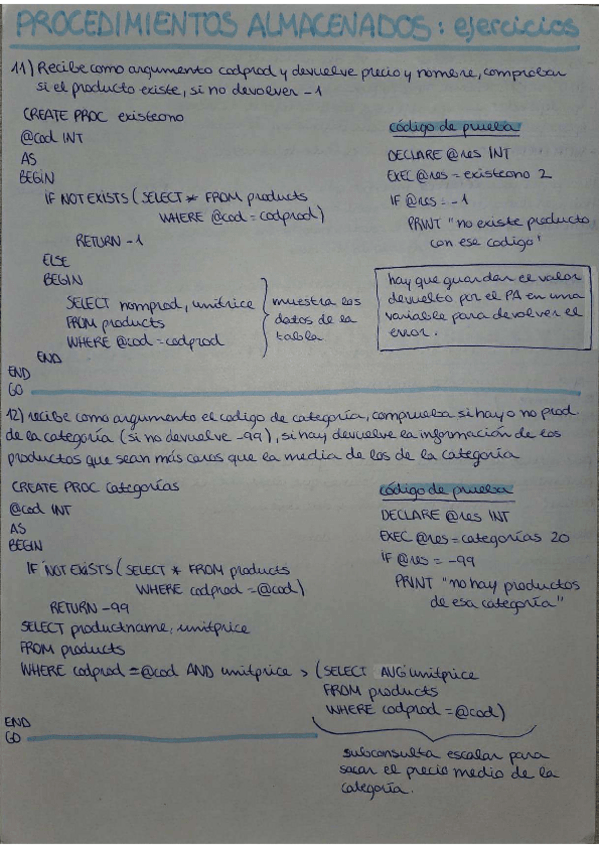 PROCEDIMIENTOS ALMACENADOS: ejercicios
11) Recibe como argumento codprod y devuelve precio y nombre, comprobar
si el producto existe, si no devolver -1
CREATE PROC existeono
@cod INT
AS
BEGIN
IF NOT EXISTS (SELECT * FROM products
WHERE @cod = codprod)
RETURN -1
ELSE
BEGIN
SELECT nomprod, unitrice
FROM products
WHERE @cod = codprod
END
END
GO
muestra los
datos de la
tabla
código de prueba
DECLARE @res INT
EXEC @res = existeono 2
IF @res = -1
PRINT "no existe producto
con ese codigo"
hay que guardar el valor
devuelto por el PA en una
variable para devolver el
error.
12) recibe como argumento el codigo de categoría, comprueba si hay o no prod.
de la categoría (si no devuelve -99), si hay devuelve la información de los
productos que sean más caros que la media de los de la categoría
CREATE PROC categorías
@cod INT
AS
BEGIN
IF NOT EXISTS (SELECT * FROM products
WHERE codprod = @cod)
RETURN -99
SELECT productname, unitprice
FROM products
WHERE codprod = @cod AND unitprice > (SELECT AVG unitprice
FROM products
WHERE codprod = @cod)
END
GO
subconsulta escalar para
sacar el precio medio de la
categoría.
código de prueba
DECLARE @res INT
EXEC @res = categorías 20
IF @res = -99
PRINT "no hay productos
de esa categoría"